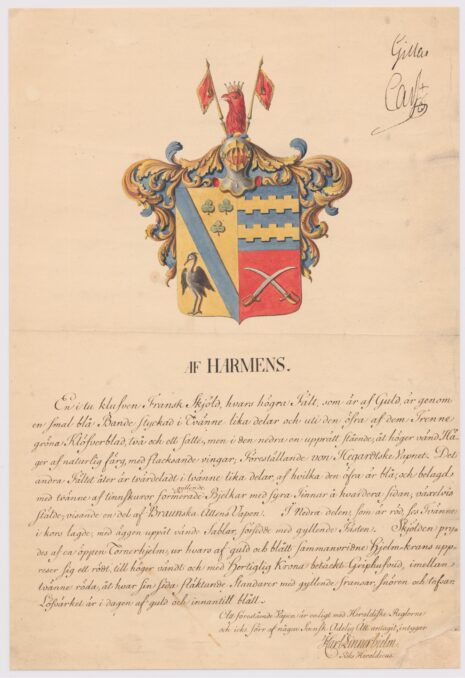 Gillas
Carl
AF HARMENS.
En i tu klufven Fransk Skjöld, hvars högra Fält, som är af Guld, är genom
en smal blå Bande styckad i Tvänne lika delar och uti den öfra af dem Trenne
gröna Klöfverblad, två och ett satte, men i den nedra en upprätt stående, åt höger vänd Hä-
ger af naturlig färg, med flacksande vingar; Föreställande von Hegardtske Vapnet. Det
andra Fältet åter är tvärdeladt i tvänne lika delar, af hvilka den öfra är blå, och belagd
med tvänne af tinnskuror formerade gyllende Bjelkar med fyra Tinnar å hvardera sidan, växelvis
stälde, visande en del af Braunska Ättens Vapen. I Nedra delen, som är röd, ses Tvänne
i kors lagde, med äggen uppåt vände Sablar, försedde med gyllende Fästen. Skjölden pry-
des af en öppen Tornerhjelm, ur hvars af guld och blått sammanvridne Hjelm-krans uppre-
ser sig ett rödt, till höger vändt och med Hertiglig Krona betäckt Griphufvud, imellan
tvänne röda, åt hvar sin sida fläktande Standarer med gyllende fransar, snören och tofsar.
Löfvärket är i dagen af guld och innantill blått.
Att förestående Vapen är enligt med Heraldiske Reglorne
och icke förr af någon Svensk Adelig Ätt antagit, intygar
Riks Heraldicus.